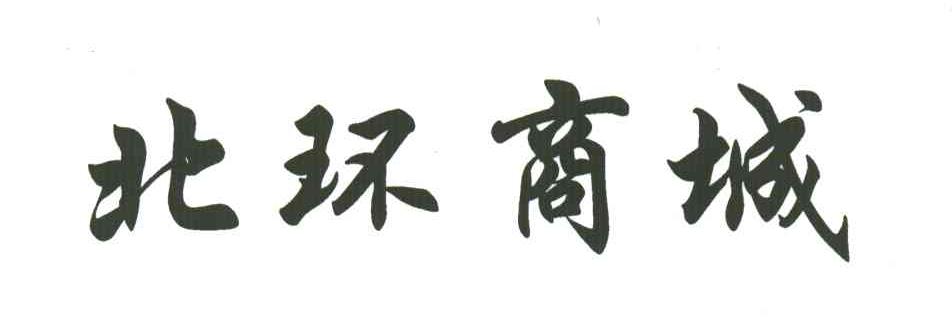 北环商城